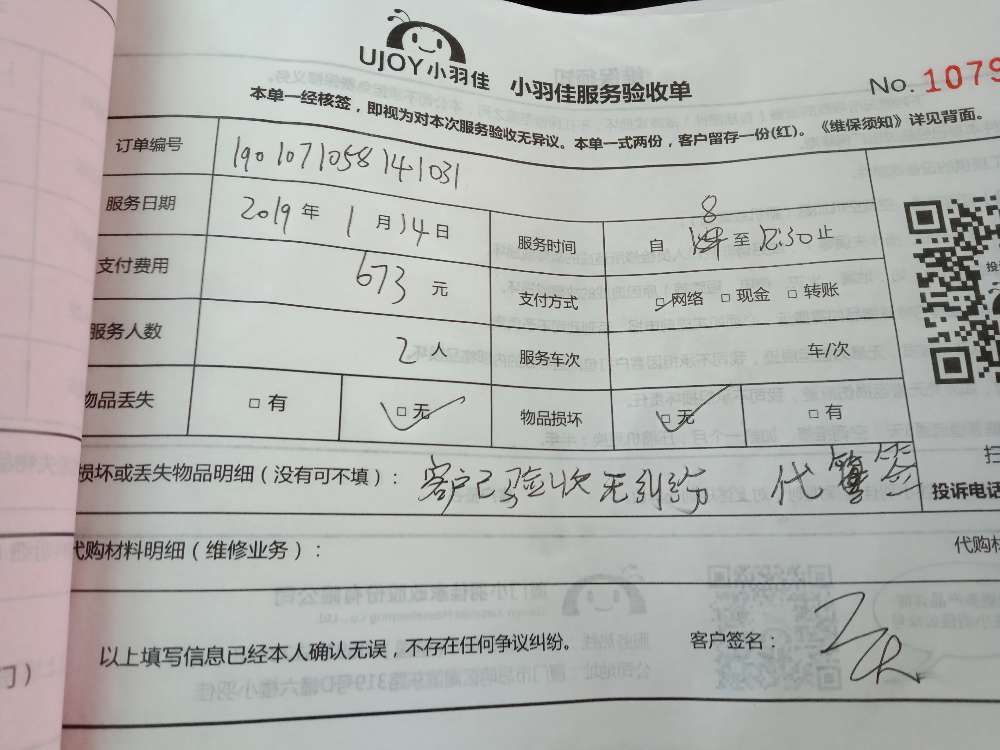 UJOY小羽佳 小羽佳服务验收单
No. 1079
本单一经核签，即视为对本次服务验收无异议。本单一式两份，客户留存一份(红)。《维保须知》详见背面。
订单编号 1901071058141031
服务日期 2019年1月14日 服务时间 自 8 至 12:30止
支付费用 673元 支付方式 □网络 □现金 □转账
服务人数 2人 服务车次 车/次
物品丢失 □有 □无 物品损坏 □无 □有
损坏或丢失物品明细（没有可不填）： 客户已验收无纠纷 代 签
投诉电话
代购材料明细（维修业务）： 代购材
以上填写信息已经本人确认无误，不存在任何争议纠纷。 客户签名：